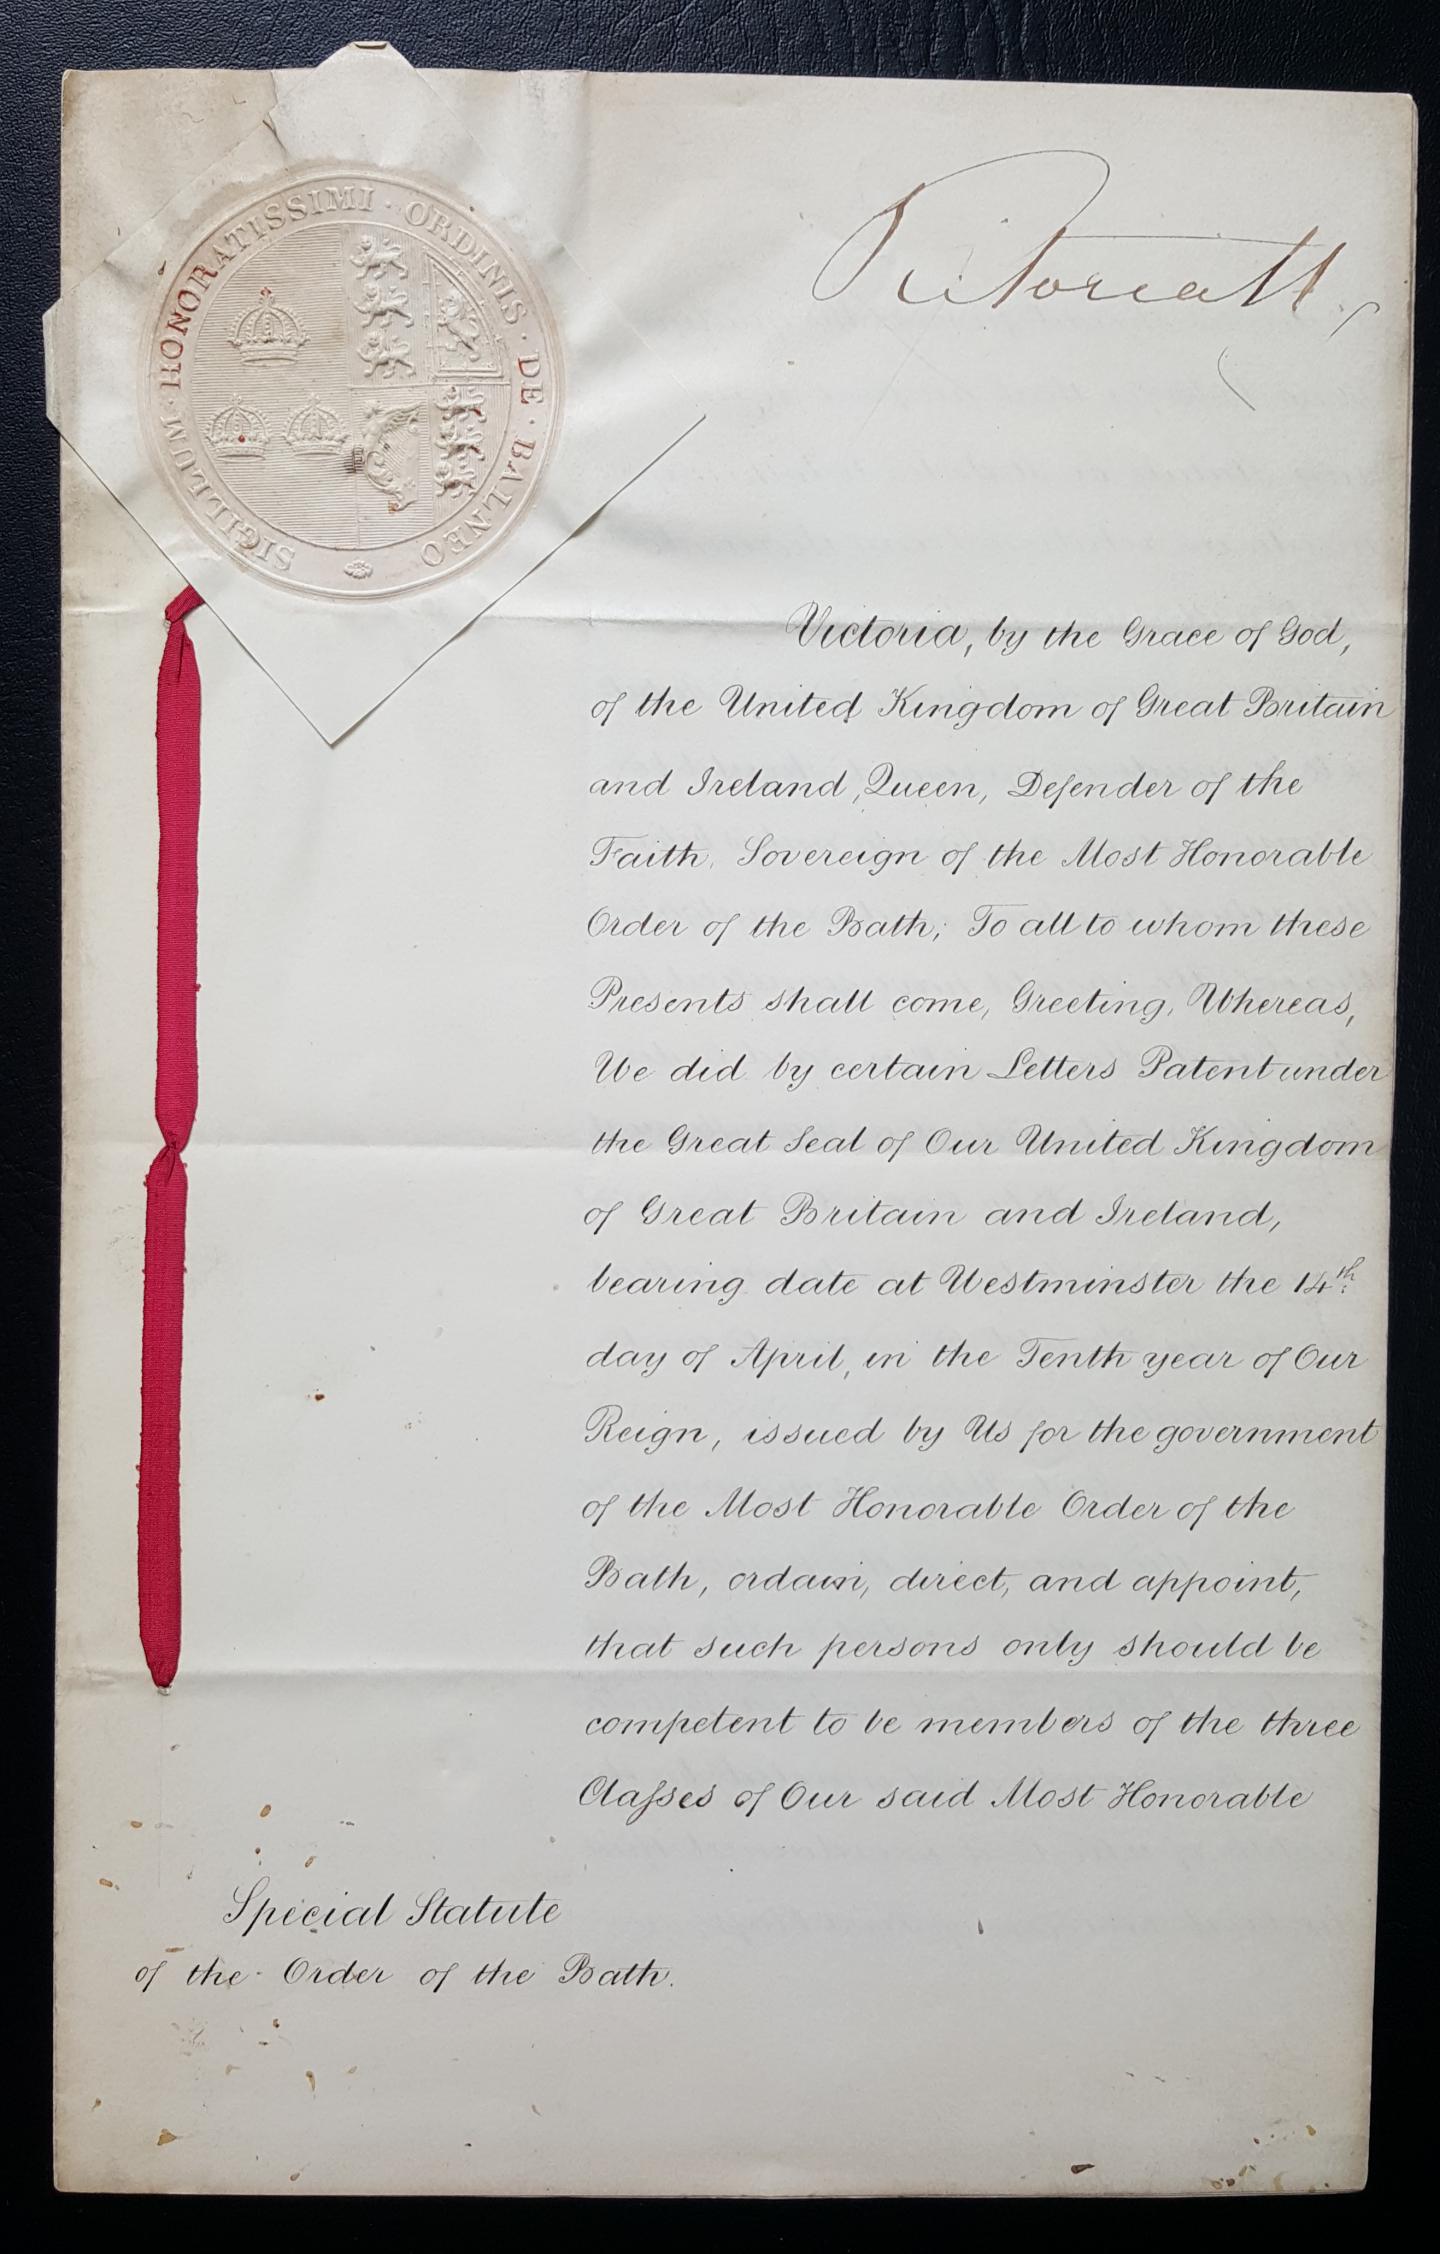 SIGILLUM · HONORATISSIMI · ORDINIS · DE · BALNEO
Victoria R
Victoria, by the Grace of God,
of the United Kingdom of Great Britain
and Ireland, Queen, Defender of the
Faith, Sovereign of the Most Honorable
Order of the Bath; To all to whom these
Presents shall come, Greeting, Whereas,
We did by certain Letters Patent under
the Great Seal of Our United Kingdom
of Great Britain and Ireland,
bearing date at Westminster the 14th
day of April, in the Tenth year of Our
Reign, issued by Us for the government
of the Most Honorable Order of the
Bath, ordain, direct, and appoint,
that such persons only should be
competent to be members of the three
Claſses of Our said Most Honorable
Special Statute
of the Order of the Bath.